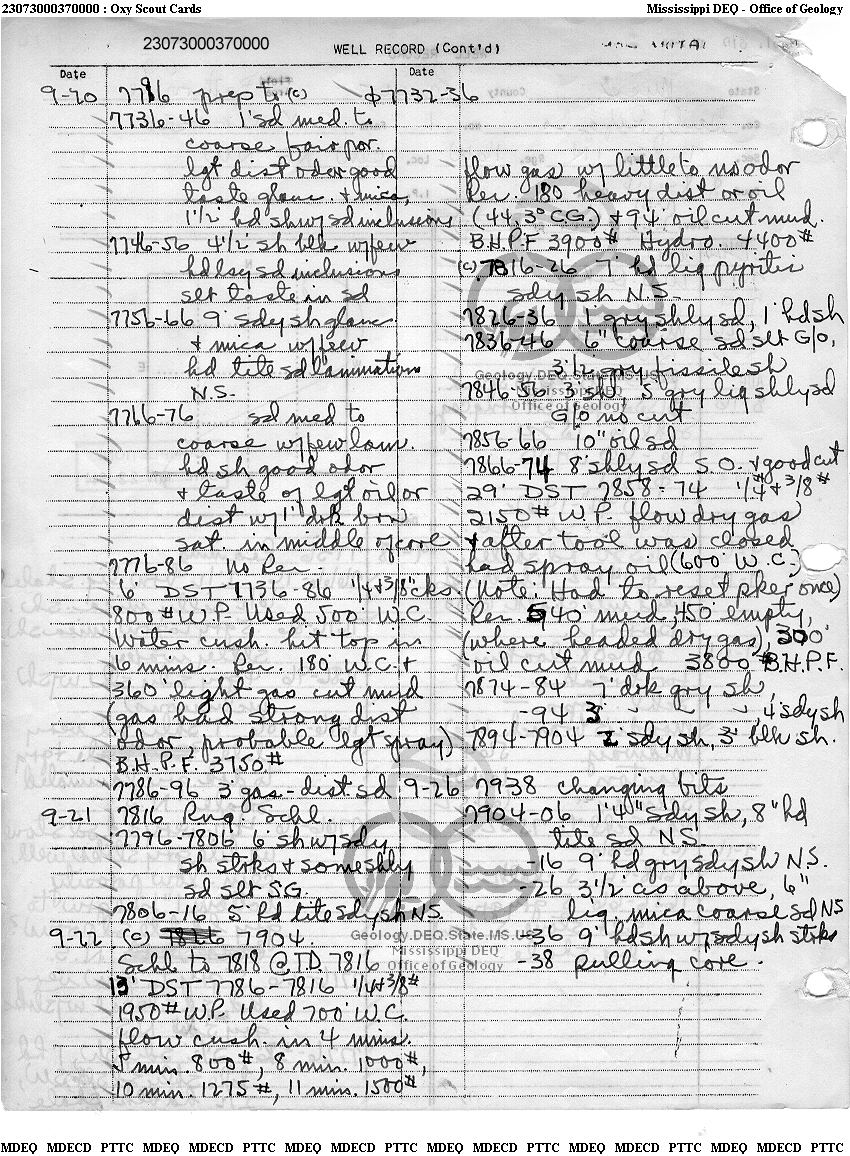 23073000370000 : Oxy Scout Cards
Mississippi DEQ - Office of Geology
23073000370000
WELL RECORD (Cont'd)
Date
9-20 7796 prep to (c)
7736-46 1' sd med. to
coarse fair por.
lgt dist odor good
taste glauc. & mica,
1 1/2' hd sh w/ sd inclusions
7746-56 4 1/2' sh blk w/few
hd lsy sd inclusions
slt taste in sd
7756-66 9' sdy sh glauc
& mica w/few
hd tite sd laminations
N.S.
7766-76 sd med to
coarse w/few lam.
hd sh good odor
& taste of lgt oil or
dist w/1' drk brn
sat. in middle of core
7776-86 No Rec.
6' DST 7736-86 1/4 & 3/8" cks
800# W.P. Used 500' W.C.
Water cush. hit top in
6 mins. Rec. 180' W.C. &
360' light gas cut mud
(gas had strong dist
odor, probable lgt spray)
B.H.P.F. 3750#
7786-96 3' gas-dist sd
9-21 7816 Rng. Schl.
7796-7806 6' sh w/sdy
sh strks & some shly
sd slt SG.
7806-16 5' hd tite sdy sh N.S.
9-22 (c) 7904.
Schl to 7818 @ TD 7816
13' DST 7786-7816 1/4 & 3/8#
1950# W.P. Used 700' W.C.
flow cush. in 4 mins.
5 min. 800#, 8 min. 1000#,
10 min. 1275#, 11 min. 1500#
Date
φ 7732-36
flow gas w/ little to no odor
Rec. 180' heavy dist or oil
(44.3° CG.) & 94' oil cut mud.
B.H.P.F 3900# Hydro. 4400#
(c) 7816-26 7' hd lig pyritic
sdy sh N.S.
7826-36 1' gry shly sd, 1' hd sh
7836-46 6" coarse sd slt G/O,
3 1/2' gry fissile sh
7846-56 3' sh, 5' gry lig shly sd
G/O no cut
7856-66 10" oil sd
7866-74 8' shly sd S.O. & good cut
29' DST 7858-74 1/4 & 3/8#
2150# W.P. flow dry gas
& after tool was closed
had spray oil (600' W.C.)
(Note: Had to reset pker once)
Rec. 540' mud, 450' empty,
(where headed dry gas), 300'
oil cut mud 3800# B.H.P.F.
7874-84 7' drk gry sh,
-94 3' " " ", 4' sdy sh
7894-7904 2' sdy sh, 3' blk sh.
9-26 7938 changing bits
7904-06 1'4" sdy sh, 8" hd
tite sd N.S.
-16 9' hd gry sdy sh N.S.
-26 3 1/2' as above, 6"
lig. mica coarse sd NS
-36 9' hd sh w/sdy sh strks
-38 pulling core.
Geology.DEQ.State.MS.US
Mississippi DEQ
Office of Geology
Geology.DEQ.State.MS.US
Mississippi DEQ
Office of Geology
MDEQ MDECD PTTC MDEQ MDECD PTTC MDEQ MDECD PTTC MDEQ MDECD PTTC MDEQ MDECD PTTC MDEQ MDECD PTTC